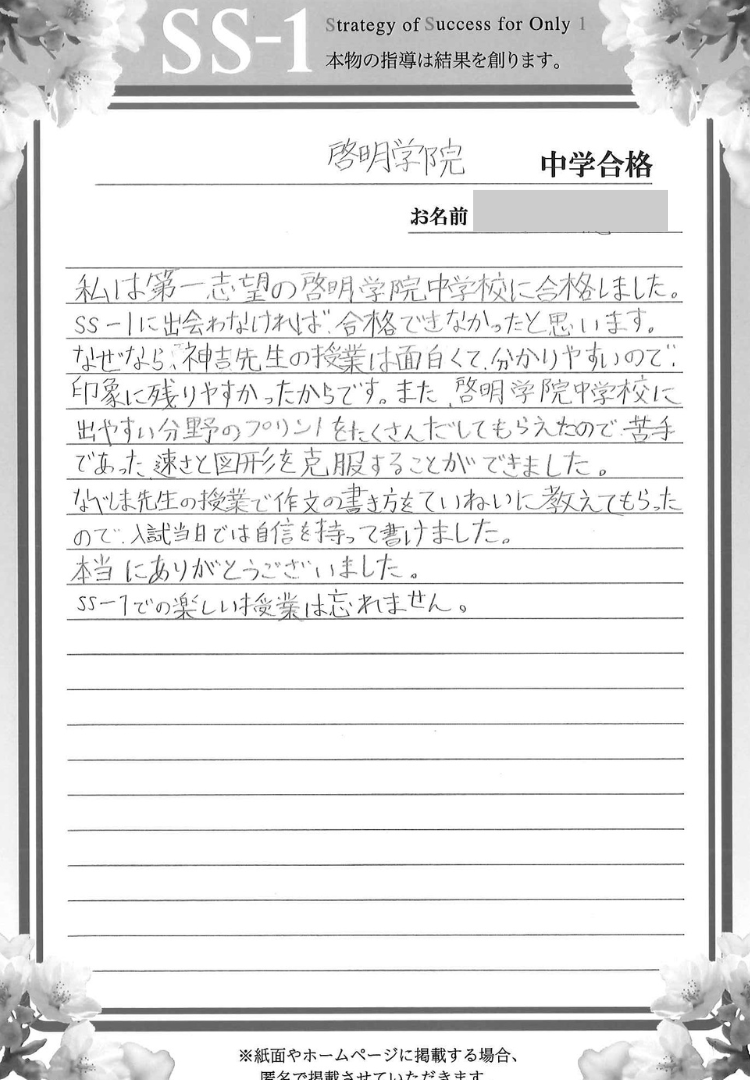 SS-1
Strategy of Success for Only 1
本物の指導は結果を創ります。
啓明学院 中学合格
お名前
私は第一志望の啓明学院中学校に合格しました。
SS-1に出会わなければ、合格できなかったと思います。
なぜなら、神吉先生の授業は面白くて、分かりやすいので、
印象に残りやすかったからです。また、啓明学院中学校に
出やすい分野のプリントをたくさんだしてもらえたので、苦手
であった、速さと図形を克服することができました。
なべしま先生の授業で作文の書き方をていねいに教えてもらった
ので、入試当日では自信を持って書けました。
本当にありがとうございました。
SS-1での楽しい授業は忘れません。
※紙面やホームページに掲載する場合、
匿名で掲載させていただきます。